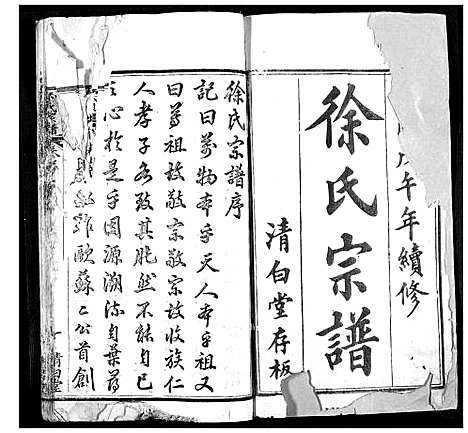 戊午年續修
徐氏宗譜
清白堂存板
徐氏宗譜序
記曰萬物本乎天人本乎祖又
曰尊祖故敬宗敬宗故收族仁
人孝子各致其
然不能自已
之心於是乎因源溯流自葉尋
歐蘇二公首創
清白堂